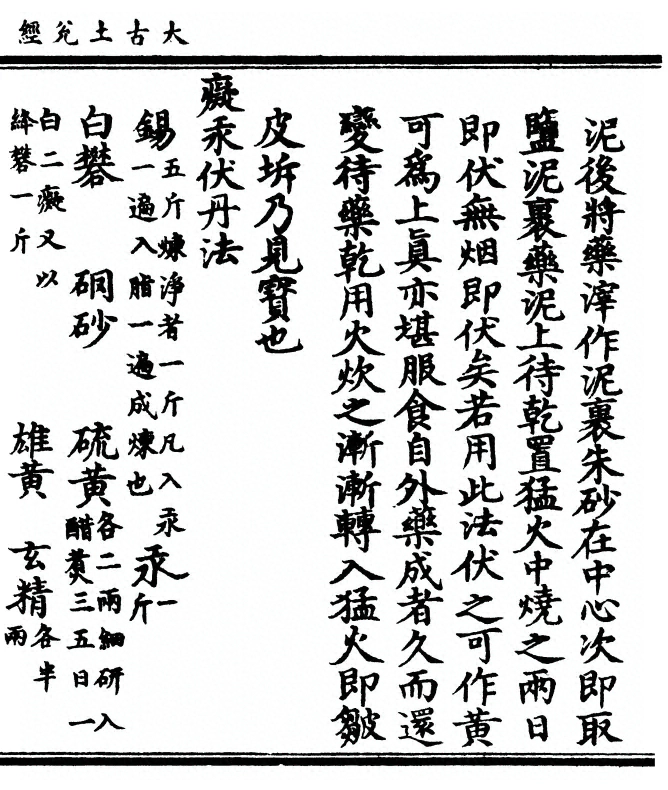 大古土兊經
泥後將藥滓作泥裹朱砂在中心次即取
鹽泥裹藥泥上待乾置猛火中燒之兩日
即伏無烟即伏矣若用此法伏之可作黃
可爲上眞亦堪服食自外藥成者久而還
變待藥乾用火炊之漸漸轉入猛火即皺
皮坼乃見寶也
癡汞伏丹法
錫五斤煉淨者一斤凡入汞一遍入脂一遍成煉也汞一斤
白礬 硐砂 硫黃各二兩細研入醋煑三五日一
白二癡又以絳礬一斤 雄黃 玄精各半兩